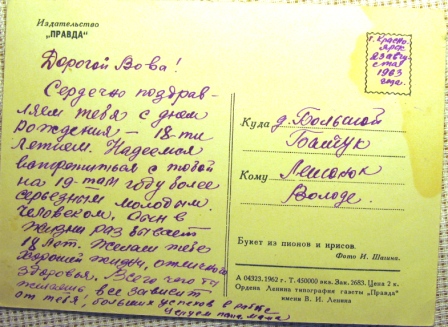 Издательство
"ПРАВДА"
Дорогой Вова!
Сердечно поздрав-
ляем тебя с днем
рождения – 18-ти
летием. Надеемся
встретиться с тобой
на 19-том году более
серьезным молодым
человеком. Один в
жизни раз бывает
18 лет. Желаем тебе
хорошей жизни, отличного
здоровья. Всего чего ты
желаешь, все зависит
от тебя, больших успехов в учебе
Целуем папа мама
г. Красно-
ярск
23 авгу-
ста
1963
года
Куда д. Большой
Кому
Володе.
Букет из пионов и ирисов.
Фото И. Шагина.
А 04323. 1962 г. Т. 450000 экз. Зак. 2683. Цена 2 к.
Ордена Ленина типография газеты "Правда"
имени В. И. Ленина